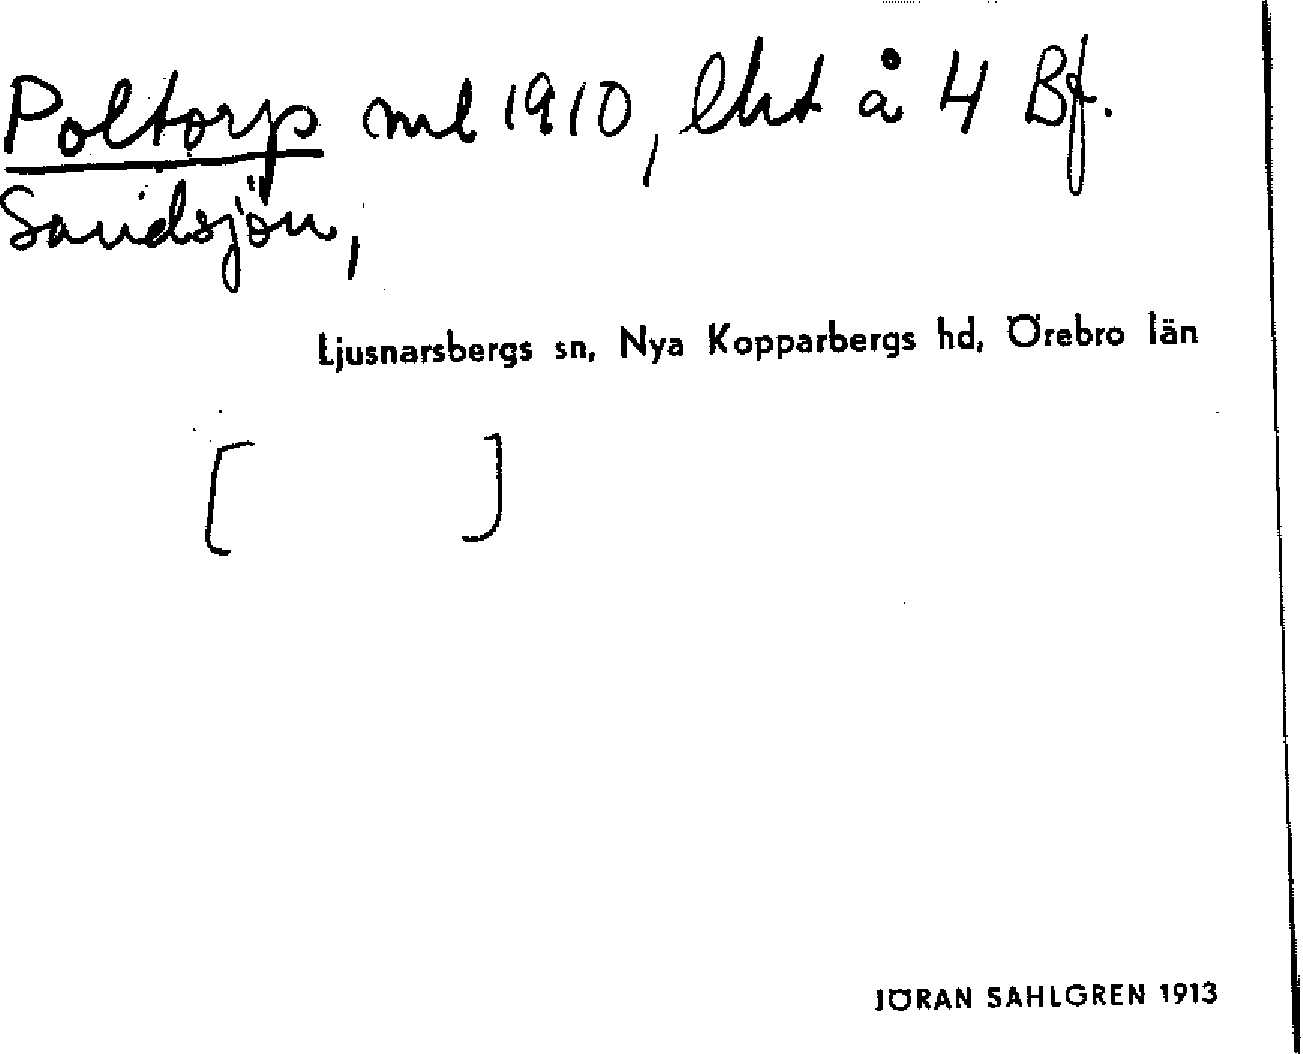 Poltorp ml 1910, lht å 4 Bf.
Sandsjön,
Ljusnarsbergs sn, Nya Kopparbergs hd, Örebro län
[ ]
JÖRAN SAHLGREN 1913